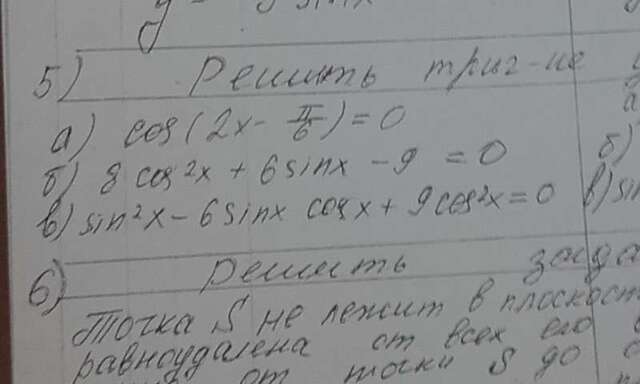 5) Решить триг-ие
а) cos(2x - π/6) = 0
б) 8 cos²x + 6 sinx - 9 = 0 б)
в) sin²x - 6 sinx cosx + 9 cos²x = 0 в) sin
6) Решить зада
Точка S не лежит в плоскост
равноудалена от всех его
от точки S до